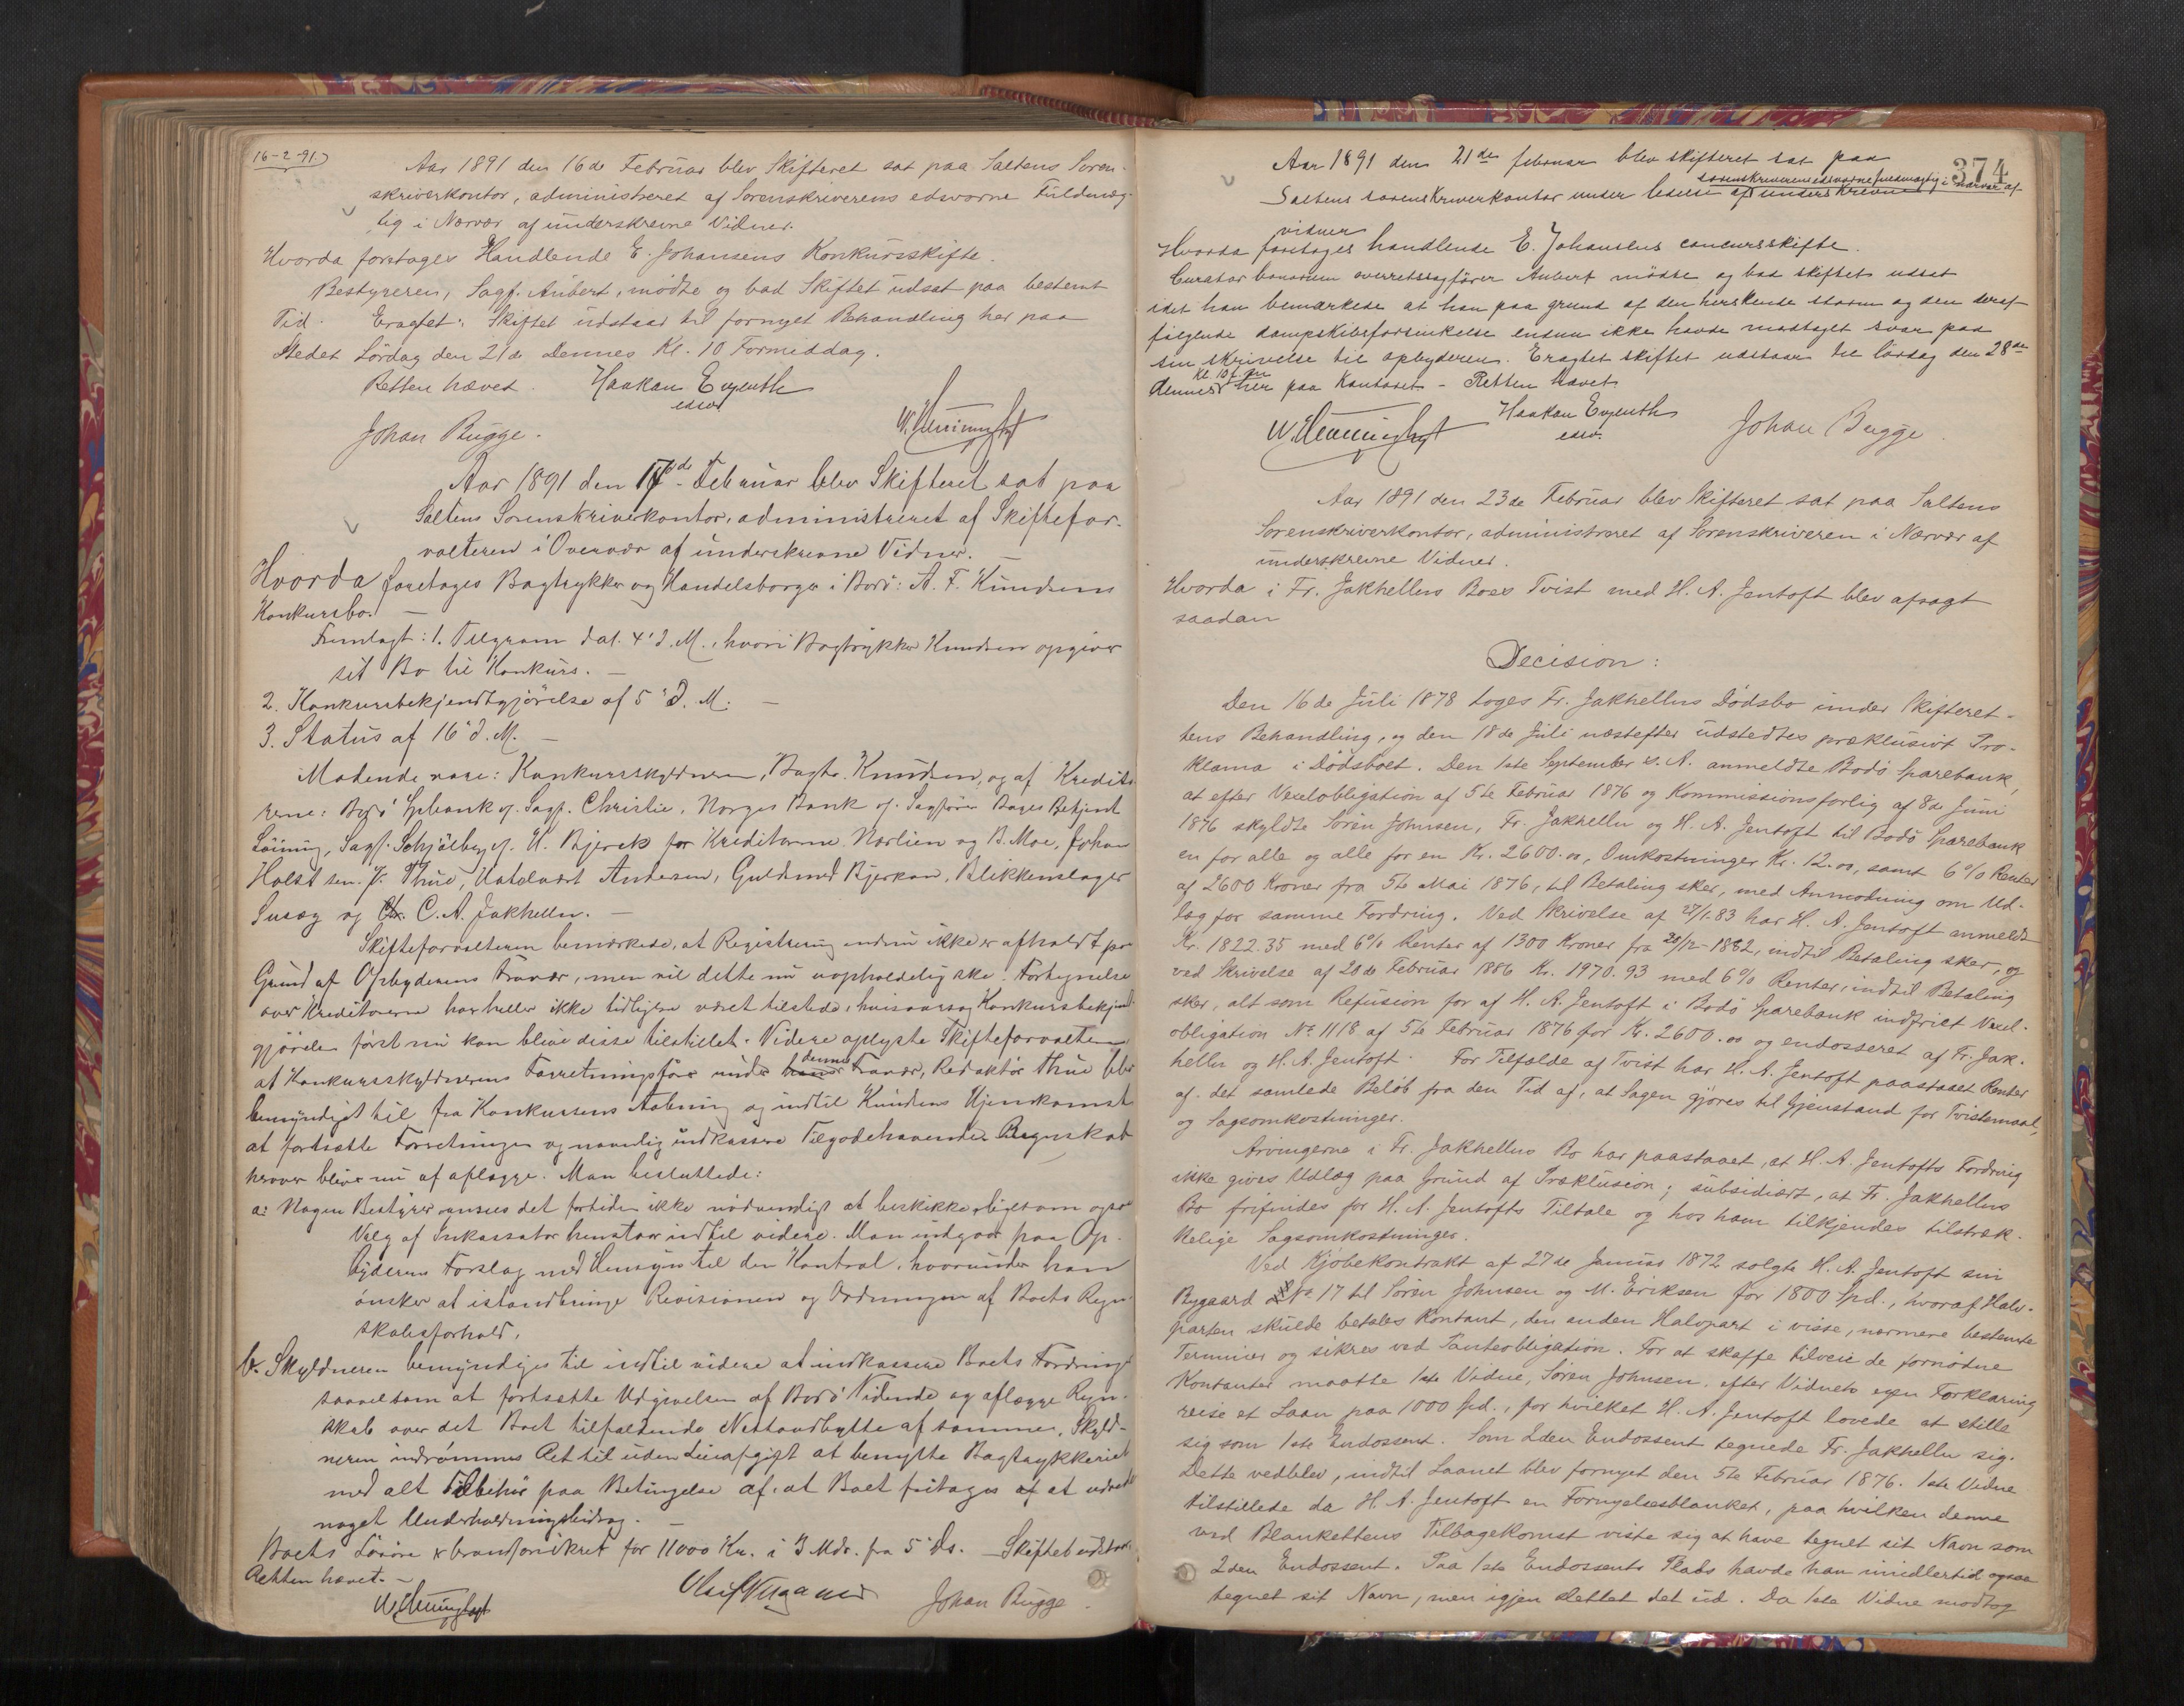 16-2-91
Aar 1891 den 16de Februar blev Skifteret sat paa Saltens Soren-
skriverkontor, administreret af Sorenskriverens edsvorne Fuldmæg-
tig i Nærvær af underskrevne Vidner.
Hvorda foretages Handlende E. Johansens Konkursskifte.
Bestyreren, Sagf. Aubert, mødte og bad Skiftet udsat paa bestemt
Tid. Eragtet: Skiftet udstaar til fornyet Behandling her paa
Stedet Lördag den 21de Dennes Kl. 10 Formiddag.
Retten hævet. Haakan Evjenth
edsv
Johan Bugge.
Aar 1891 den 17de Februar blev Skifteret sat paa
Saltens Sorenskriverkontor, administreret af Skiftefor-
valteren i Overvær af underskrevne Vidner. —
Hvorda foretages Bogtrykker og Handelsborger i Bodö: A. F. Knudsens
Konkursbo. —
Fremlagt: 1. Telegram dat. 4' d. M., hvori Bogtrykker Knudsen opgiver
sit Bo til Konkurs. —
2. Konkursbekjendtgjörelse af 5' d. M. —
3. Status af 16' d. M. —
Mødende vare: Konkursskyldneren, Bogtr. Knudsen, og af Kredito
rerne: Bodö Spbank v. Sagf. Christie, Norges Bank v. Sagförer Boges Betjent
Löining, Sagf. Schjölberg v. U. Bjerck for Kreditorerne Norlien og B. Moe, Johan
Holst sen. P. Thue, Andersen, Guldsmed Bjerkan, Blikkenslager
Susæg og C. A. Jakhelln. —
Skifteforvalteren bemærkede, at Registrering endnu ikke er afholdt paa
Grund af Opbyderens Fravær, men vil dette nu uopholdelig ske. Fortegnelse
over Kreditorerne har heller ikke tidligere været tilstede, hvisaarsag Konkursbekjendt
gjörelse först nu kan blive disse tilstillet. Videre oplyste Skifteforvalteren
at Konkursskyldnerens Forretningsförer under hans dennes Fravær, Redaktör Thue blev
bemyndiget til fra Konkursens Aabning og indtil Knudsens Hjemkomst
at fortsætte Forretningen og navnlig indkassere Tilgodehavender. Regnskab
herover bliver nu at aflægge. Man besluttede:
a: Nogen Bestyrer ansees det fortiden ikke nödvendigt at beskikke, ligesom ogsaa
Valg af Inkassator henstaar indtil videre. Man indgaar paa Op-
byderens Forslag med Hensyn til den Kontrol, hvorunder han
önsker at istandbringe Revisionen og Ordningen af Boets Regn-
skabsforhold.
b. Skyldneren bemyndiges til indtil videre at indkassere Boets Fordringer
saavelsom at fortsætte Udgivelsen af Bodö Tidende og aflægge Regn-
skab over det Boet tilfaldende Nettoudbytte af samme. Skyld-
neren indrömmes Ret til uden Leieafgift at benytte Bogtrykkeriet
med alt Tilbehör paa Betingelse af, at Boet fritages af at udrede
noget Underholdningsbidrag. —
Boets Lösöre er brandforsikret for 11000 Kr. i 3 Mdr. fra 5' ds. — Skiftet udstaar
Retten hævet. —
Johan Bugge.
374
Aar 1891 den 21de februar blev skifteret sat paa
sorenskriverens edsvorne fuldmægtig i nærvær af
Saltens sorenskriverkontor under ledelse af underskrevne
vidner
Hvorda foretages handlende E. Johansens concursskifte.
Curator bonorum overretssagförer Aubert mödte og bad skiftet udsat
idet han bemærkede at han paa grund af den herskende storm og den deraf
følgende dampskibsforsinkelse endnu ikke havde modtaget svar paa
sin skrivelse til opbyderen. Eragtet skiftet udstaar til lördag den 28de
Kl 10 f.m
dennes her paa Kontoret. — Retten hævet.
Haakan Evjenth
edsv.
Johan Bugge.
Aar 1891 den 23de Februar blev Skifteret sat paa Saltens
Sorenskriverkontor, administreret af Sorenskriveren i Nærvær af
underskrevne Vidner.
Hvorda i Fr. Jakhellns Boes Tvist med H. A. Jentoft blev afsagt
saadan
Decision:
Den 16de Juli 1878 toges Fr. Jakhellns Dödsbo under Skifteret-
tens Behandling, og den 18de Juli næstefter udstedtes præklusivt Pro-
klama i Dödsboet. Den 1ste September s. A. anmeldte Bodö Sparebank,
at efter Vexelobligation af 5te Februar 1876 og Kommissionsforlig af 8de Juni
1876 skyldte Sören Johnsen, Fr. Jakhelln og H. A. Jentoft til Bodö Sparebank
en for alle og alle for en Kr. 2600.00, Omkostninger Kr. 12.00, samt 6% Renter
af 2600 Kroner fra 5te Mai 1876, til Betaling sker, med Anmodning om Ud-
læg for samme Fordring. Ved Skrivelse af 27/1-83 har H. A. Jentoft anmeldt
Kr. 1822.35 med 6% Renter af 1300 Kroner fra 20/12-1882, indtil Betaling sker, og
ved Skrivelse af 20de Februar 1886 Kr. 1970.93 med 6% Renter, indtil Betaling
sker, alt som Refusion for af H. A. Jentoft i Bodö Sparebank indfriet Vexel-
obligation No. 1118 af 5te Februar 1876 for Kr. 2600.00 og endosseret af Fr. Jak-
helln og H. A. Jentoft. For Tilfælde af Tvist har H. A. Jentoft paastaaet Renter
af det samlede Belöb fra den Tid af, at Sagen gjöres til Gjenstand for Tvistemaal,
og Sagsomkostninger.
Arvingerne i Fr. Jakhellns Bo har paastaaet, at H. A. Jentofts Fordring
ikke gives Udlæg paa Grund af Præklusion; subsidiært, at Fr. Jakhellns
Bo frifindes for H. A. Jentofts Tiltale og hos ham tilkjendes tilstræk-
kelige Sagsomkostninger.
Ved Kjöbekontrakt af 27de Januar 1872 solgte H. A. Jentoft sin
Bygaard No 17 til Sören Johnsen og M. Eriksen for 1800 Spd., hvoraf Halv-
parten skulde betales kontant, den anden Halvpart i visse, nærmere bestemte
Terminer og sikres ved Panteobligation. For at skaffe tilveie de fornödne
Kontanter maatte 1ste Vidne, Sören Johnsen, efter Vidnets egen Forklaring
reise et Laan paa 1000 spd., for hvilket H. A. Jentoft lovede at stille
sig som 1ste Endossent. Som 2den Endossent tegnede Fr. Jakhelln sig.
Dette vedblev, indtil Laanet blev fornyet den 5te Februar 1876. 1ste Vidne
tilstillede da H. A. Jentoft en Fornyelsesblanket, paa hvilken denne
ved Blankettens Tilbagekomst viste sig at have tegnet sit Navn som
2den Endossent. Paa 1ste Endossents Plads havde han imidlertid ogsaa
tegnet sit Navn, men igjen slettet det ud. Da 1ste Vidne modtog